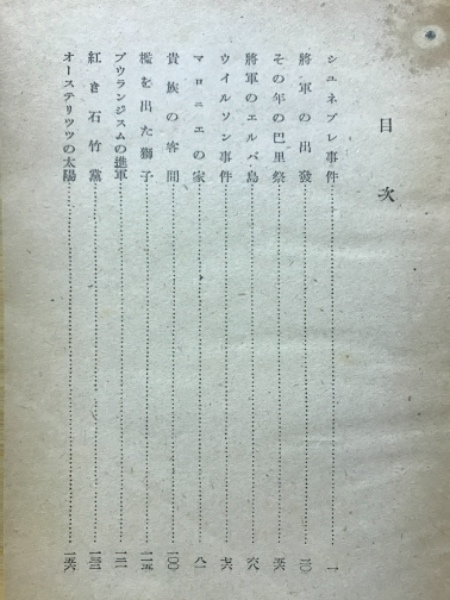 目次
シユネブレ事件……一
將軍の出發……二〇
その年の巴里祭……五六
將軍のエルバ島……六八
ウイルソン事件……七六
マロニエの家……八一
貴族の客間……一〇〇
檻を出た獅子……一一五
ブウランジスムの進軍……一二一
紅き石竹黨……一三二
オーステリツツの太陽……一五六